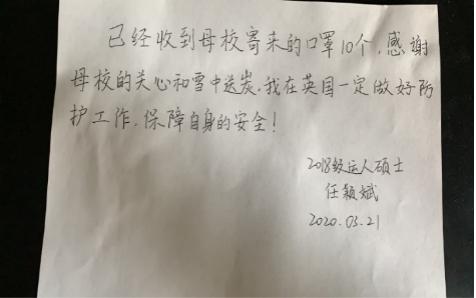 已经收到母校寄来的口罩10个，感谢
母校的关心和雪中送炭，我在英国一定做好防
护工作，保障自身的安全！
2018级运人硕士
任颖斌
2020.03.21